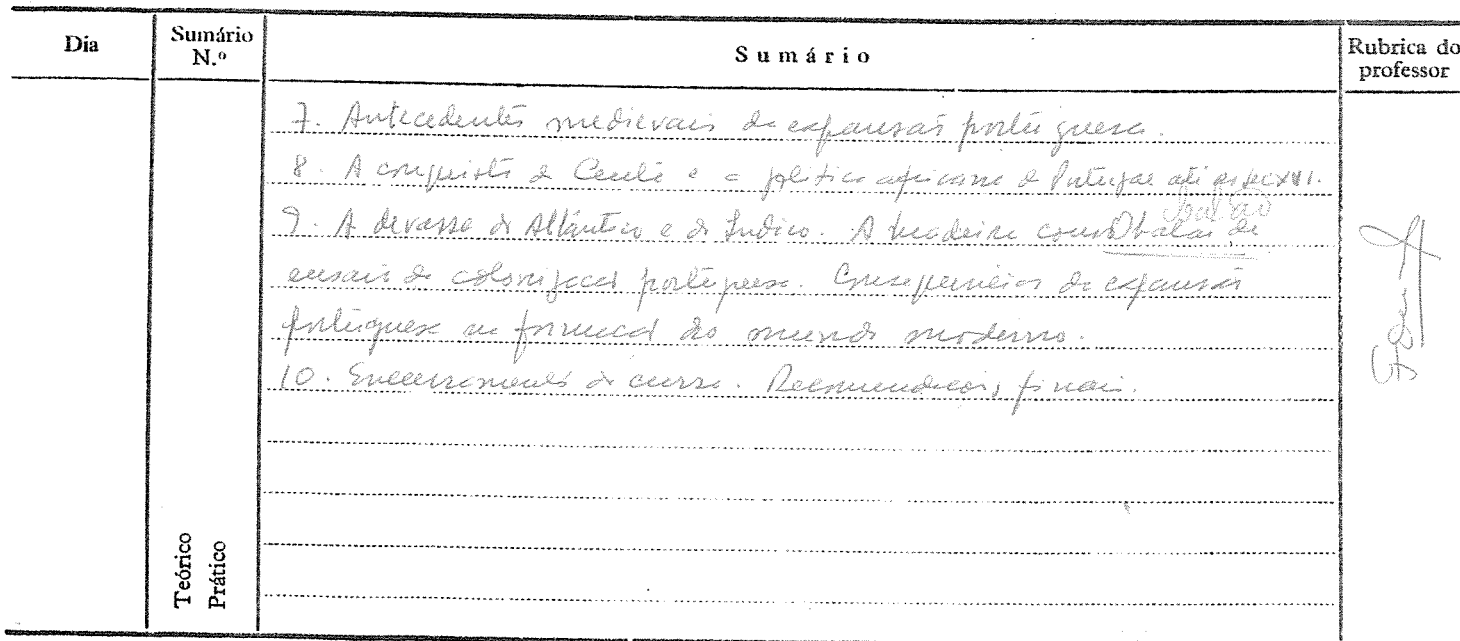 Dia
Sumário N.º
Sumário
Rubrica do professor
7. Antecedentes medievais da expansão portuguesa.
8. A conquista de Ceuta e a política africana de Portugal até ao sec XVI.
balão
9. A devassa do Atlântico e do Índico. A Madeira como balão de
ensaio da colonização portuguesa. Consequências da expansão
portuguesa na formação do mundo moderno.
10. Encerramento do curso. Recomendações finais.
Teórico
Prático